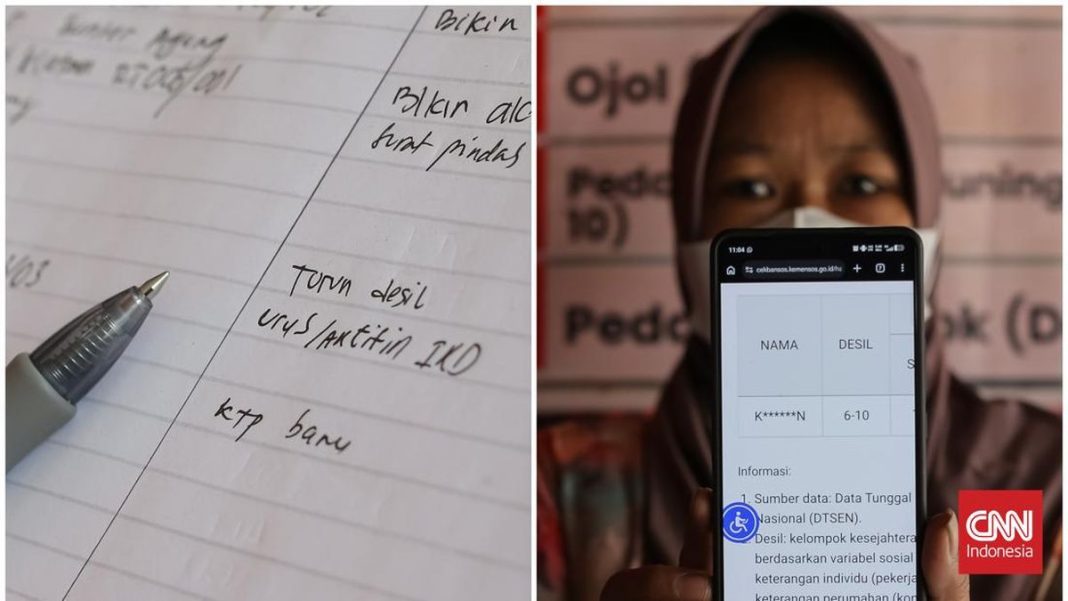 Bikin
Sunter Agung
RT 005/001
Bikin
surat pindah
Turun desil
urus/Aktifin IKD
KTP baru
Ojol
Peda
uning
10)
Peda
ok (D
11:04
cekbansos.kemensos.go.id/ha
NAMA
DESIL
S
K******N
6-10
Informasi:
1. Sumber data: Data Tunggal
Nasional (DTSEN).
Desil: kelompok kesejahtera
berdasarkan variabel sosial
keterangan individu (pekerja
keterangan perumahan (kon
CNN
Indonesia